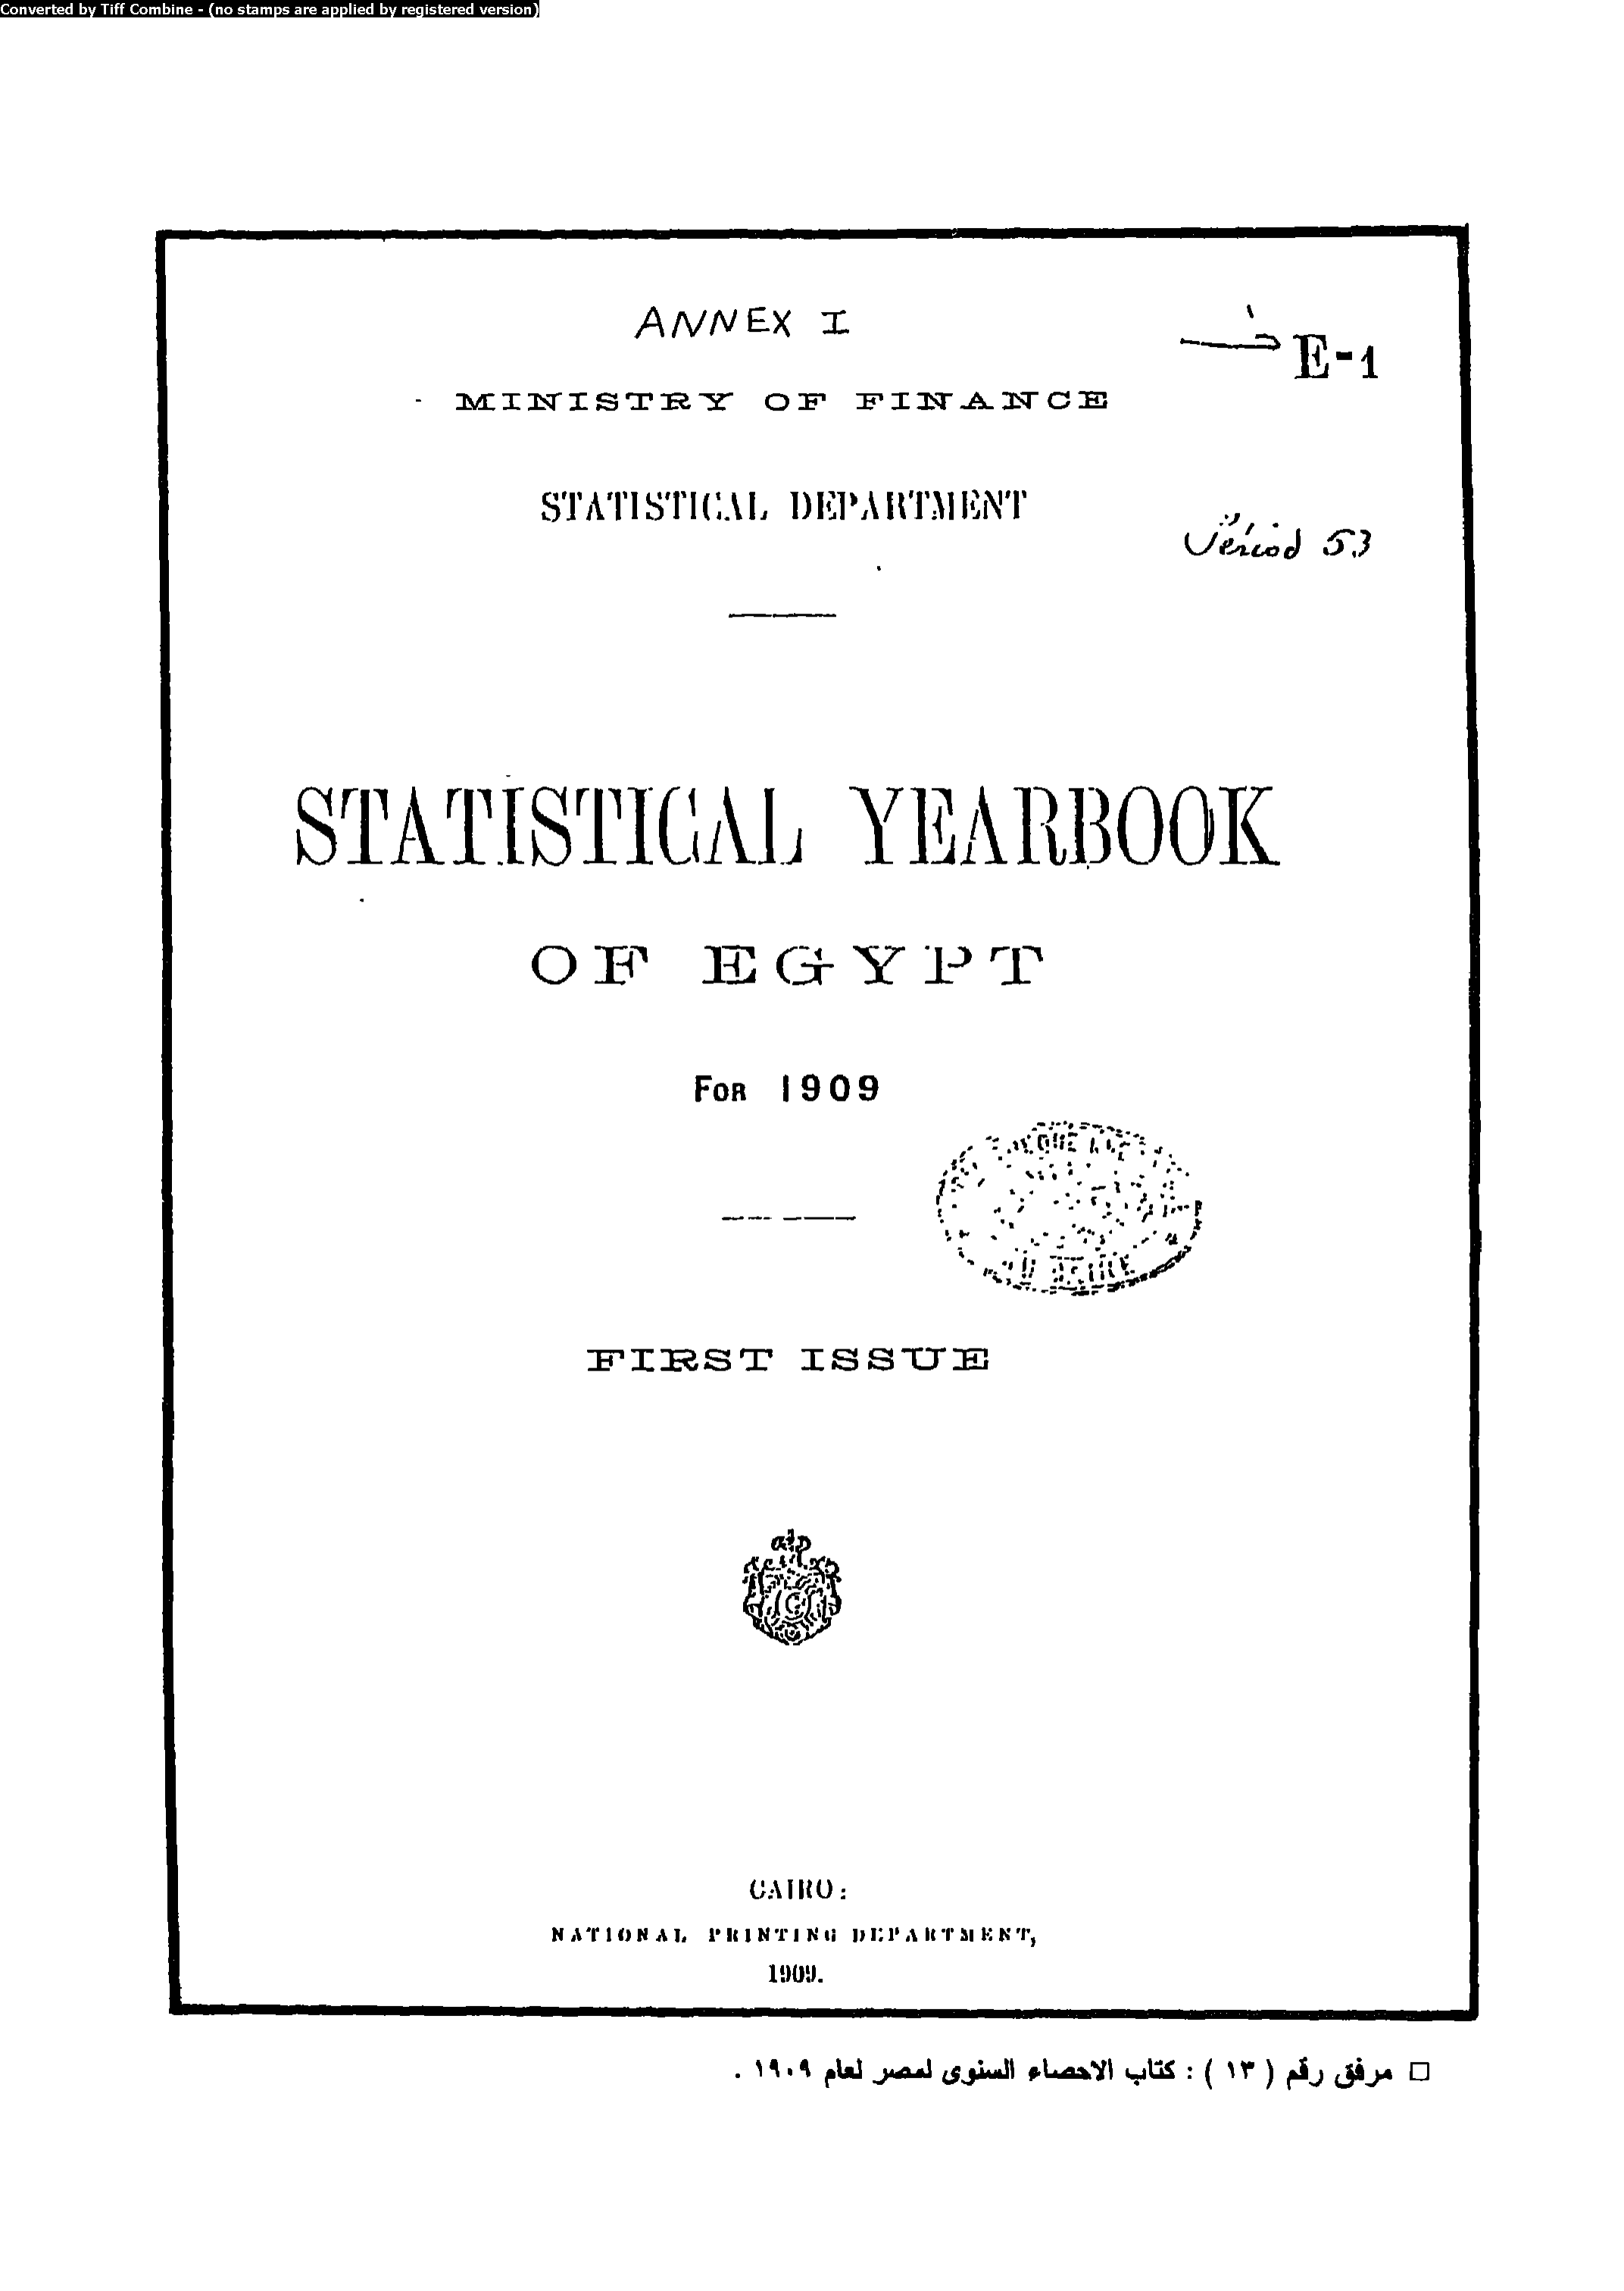 Converted by Tiff Combine - (no stamps are applied by registered version)
ANNEX I
E-1
MINISTRY OF FINANCE
STATISTICAL DEPARTMENT
Period 53
STATISTICAL YEARBOOK
OF EGYPT
FOR 1909
FIRST ISSUE
CAIRO:
NATIONAL PRINTING DEPARTMENT,
1909.
□ مرفق رقم ( ١٣ ) : كتاب الاحصاء السنوى لمصر لعام ١٩٠٩ .